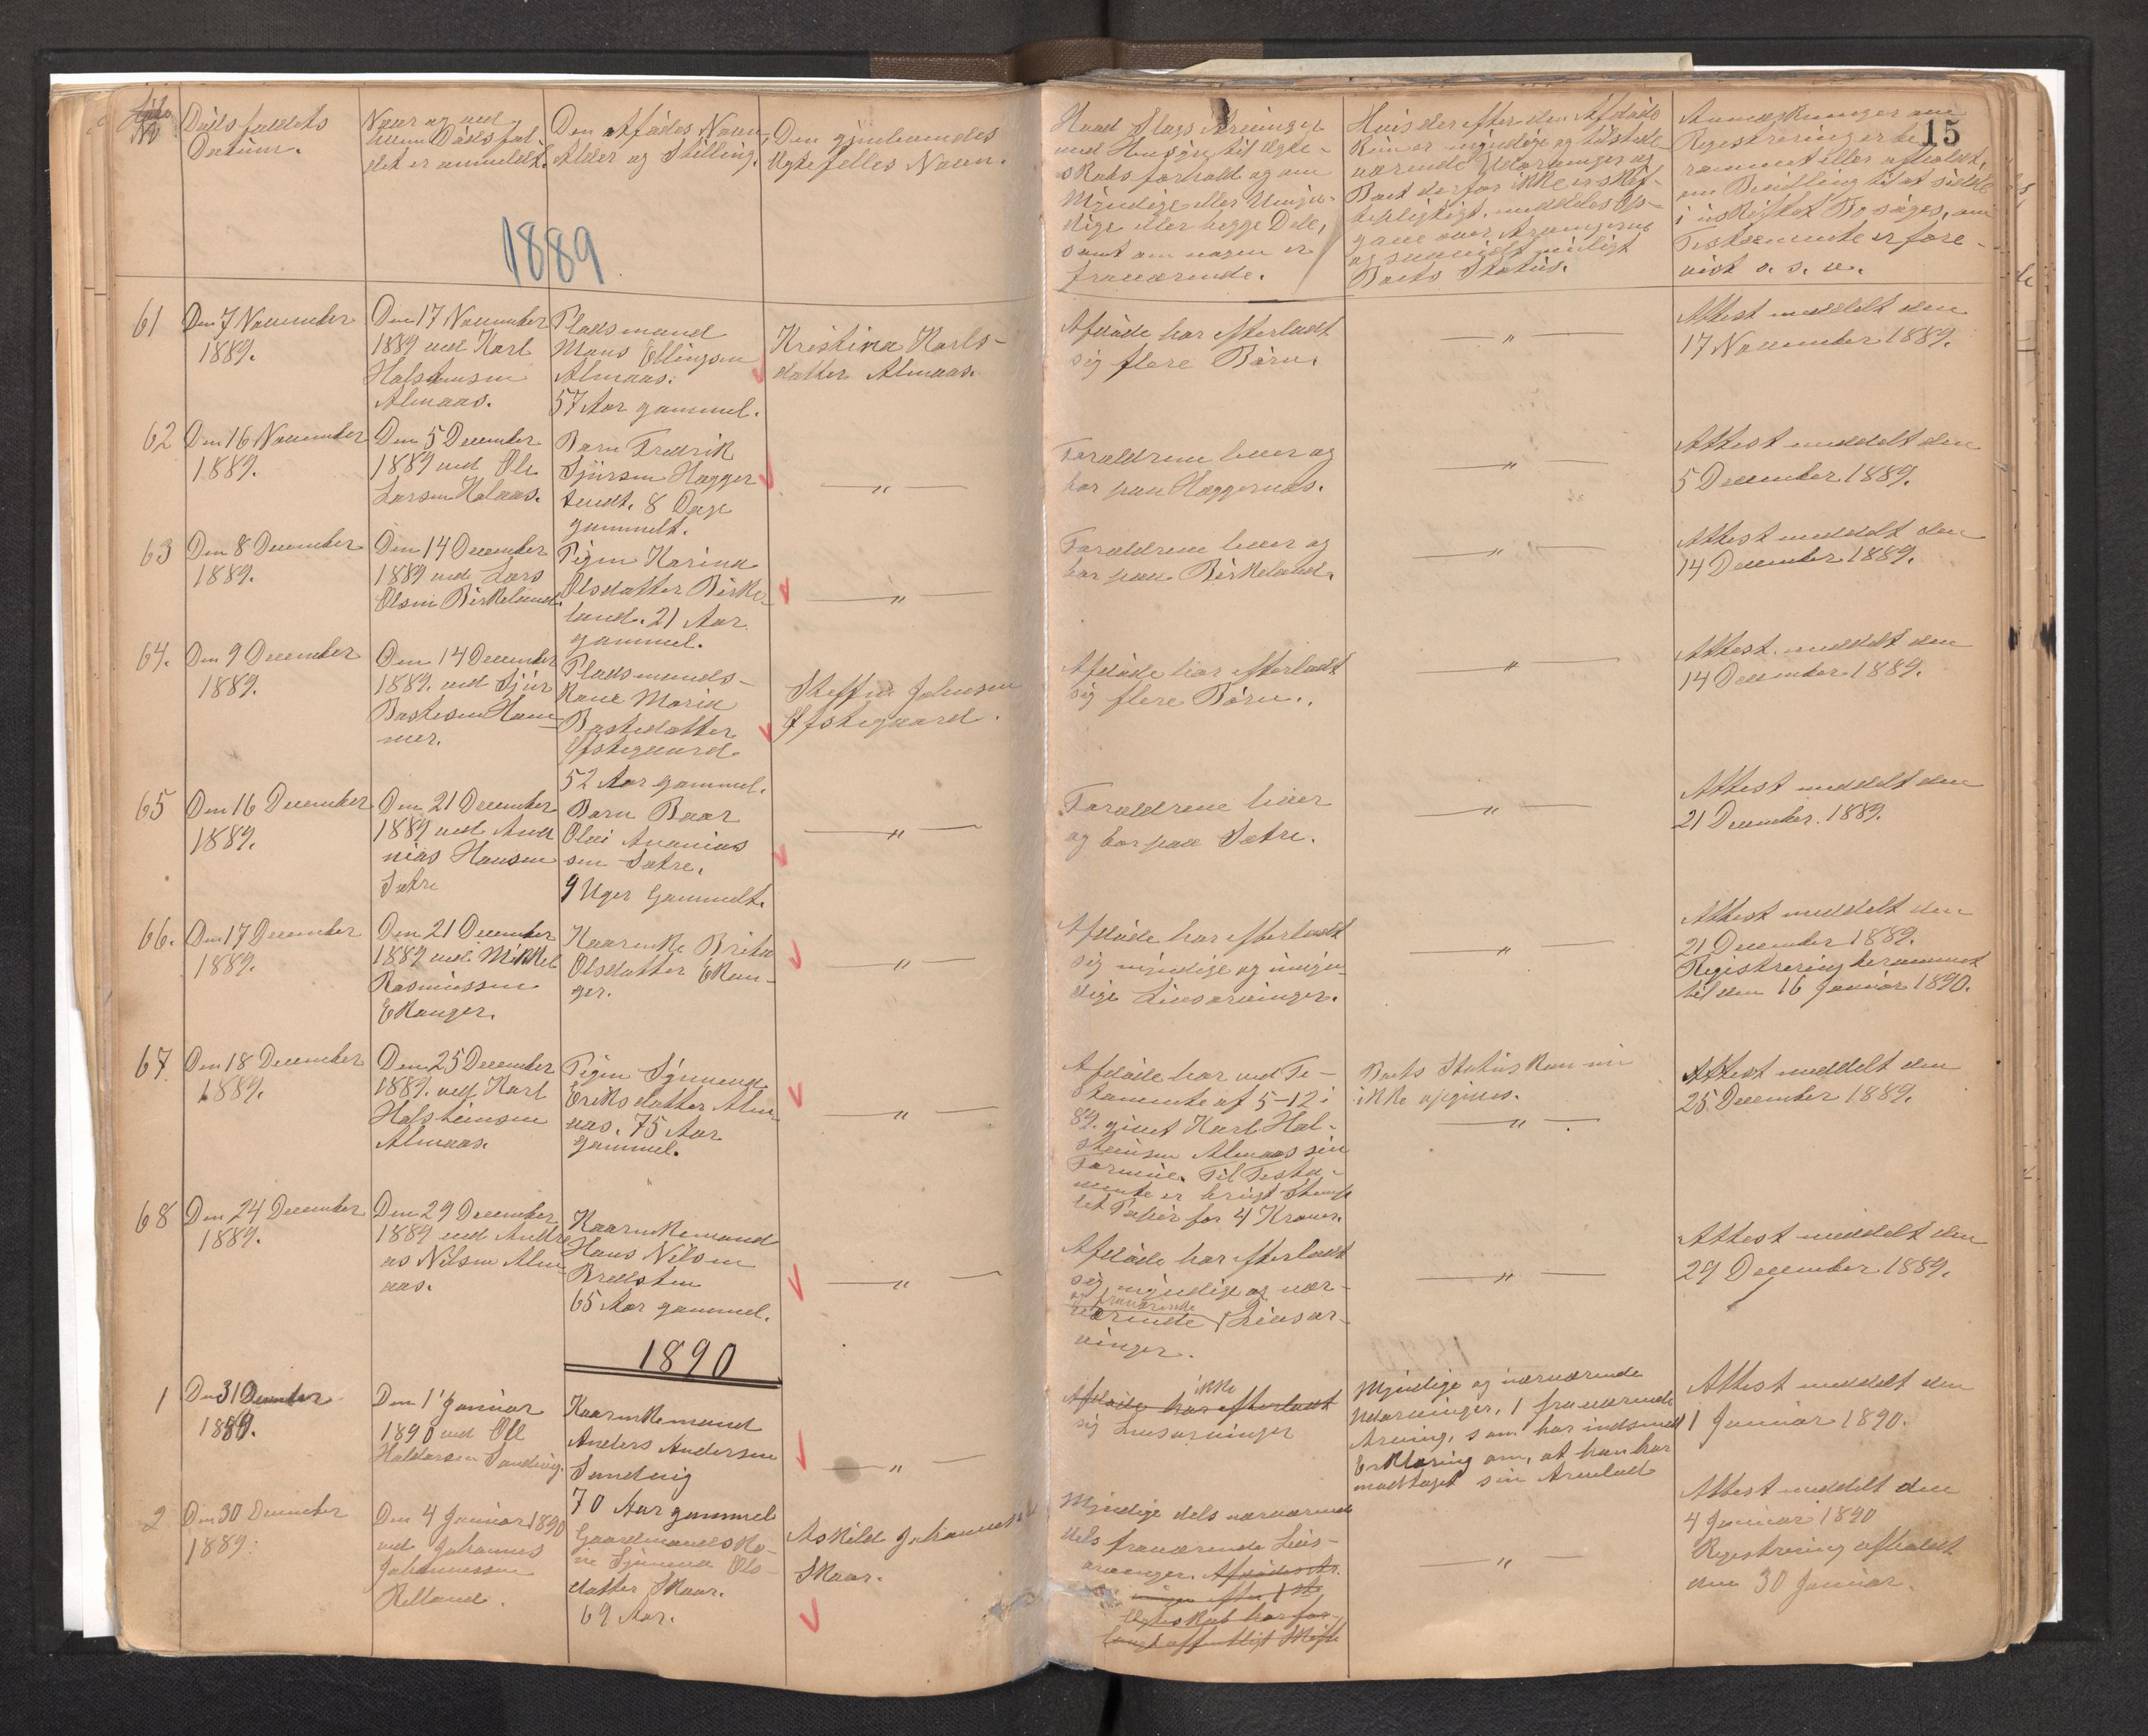 15
Løbe
No
Dødsfaldets
Datum.
Naar og ved
hvem Dødsfal-
det er anmeldt.
Den Afdødes Navn,
Alder og Stilling.
Den gjenlevendes
Ægtefelles Navn.
Hvad Slags Arvinger
med Hensyn til Ægte-
skabsforhold og om
Myndige eller Umyn-
dige eller begge Dele,
samt om nogen er
fraværende.
Hvis der efter den Afdøde
Kun er myndige og tilstede-
værende Udarvinger og
Boet derfor ikke er skif-
tepligtigt, meddeles Op-
gave over Arvingerne
og saavidt muligt
Boets Status.
Anmærkninger om
Registrering er be-
rammet eller afholdt,
om Bevilling til at sidde
i uskiftet Bo søges, om
Testamente er fore-
vist o. s. v.
1889
61
Den 7 November
1889.
Den 17 November
1889 ved Karl
Halstensen
Almaas.
Pladsmand
Mons Ellingsen
Almaas.
57 Aar gammel.
Kristina Karls-
datter Almaas.
Afdøde har efterladt
sig flere Børn.
— " —
Attest meddelt den
17 November 1889.
62
Den 16 November
1889.
Den 5 December
1889 ved Ole
Larsen Helaas.
Barn Fredrik
Sjursen Hægger
tvedt. 8 Dage
gammelt.
— " —
Forældrene lever og
bor paa Heggernæs.
— " —
Attest meddelt den
5 December 1889.
63
Den 8 December
1889.
Den 14 December
1889 ved Lars
Olsen Birkeland.
Pigen Karina
Olsdatter Birke-
land. 21 Aar
gammel.
— " —
Forældrene lever og
bor paa Birkeland.
— " —
Attest meddelt den
14 December 1889.
64.
Den 9 December
1889.
Den 14 December
1889. ved Sjur
Bastesen Ham-
mer.
Pladsmands-
Kone Maria
Bastedatter
Øfstegaard.
52 Aar gammel.
Steffen Johnsen
Øfstegaard.
Afdøde har efterladt
sig flere Børn.
— " —
Attest meddelt den
14 December 1889.
65
Den 16 December
1889.
Den 21 December
1889 ved Ana
nias Hansen
Sætre
Barn Baar
Olai Ananias
sen Sætre.
9 Uger Gammelt.
— " —
Forældrene lever
og bor paa Sætre.
— " —
Attest meddelt den
21 December. 1889.
66.
Den 17 December
1889.
Den 21 December
1889 ved Mikkel
Rasmussen
Ekanger.
Kaarenke Brita
Olsdatter Ekan-
ger.
— " —
Afdøde har efterladt
sig myndige og umyn-
dige Livsarvinger.
— " —
Attest meddelt den
21 December 1889.
Registrering berammet
til den 16 Januar 1890.
67
Den 18 December
1889.
Den 25 December
1889. ved Karl
Halsteinsen
Almaas.
Pigen Synneva
Eriksdatter Alm-
aas. 75 Aar
gammel.
— " —
Afdøde har ved Te-
stamente af 5-12 i
89. givet Karl Hal-
steinsen Almaas sin
Formue. Til Testa-
mente er brugt Stemp
let Papir for 4 Kroner.
Boets Status kan nu
ikke opgives.
— " —
Attest meddelt den
25 December 1889.
68
Den 24 December
1889.
Den 29 December
1889 ved Andre
as Nilsen Alm
aas.
Kaarenkemand
Hans Nilsen
Bredsten
65 Aar gammel.
— " —
Afdøde har efterladt
sig myndige og nær-
og fraværende
værende Livsar-
vinger.
— " —
Attest meddelt den
29 December 1889.
1890
1
Den 31 December
1889.
Den 1' Januar
1890 ved Ole
Haldorsen Sandvig.
Kaarenkemand
Anders Andersen
Sandvig
70 Aar gammel
— " —
ikke
Afdøde har efterladt
sig Livsarvinger
Myndige og nærværende
Udarvinger, 1 fraværende
Arving, som har indsendt
Erklæring om, at han har
modtaget sin Arvelod
Attest meddelt den
1 Januar 1890.
2
Den 30 December
1889.
Den 4 Januar 1890
ved Johannes
Johannessen
Helland.
Gaardmandsko-
ne Synneva Ols-
datter Skaar.
69 Aar.
Askild Johannesen
Skaar.
Myndige dels nærværende
dels fraværende Livs-
arvinger. Afdødes Ar-
vinger efter 1ste
Ægteskab har for-
langt offentligt Skifte
— " —
Attest meddelt den
4 Januar 1890
Registrering afholdt
den 30 Januar.